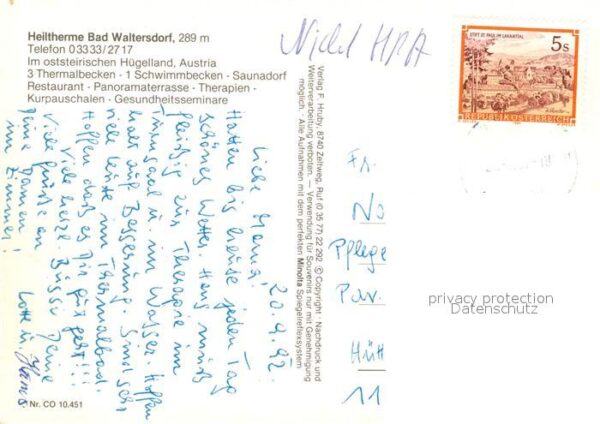 Heiltherme Bad Waltersdorf, 289 m
Telefon 0 33 33/27 17
Im oststeirischen Hügelland, Austria
3 Thermalbecken · 1 Schwimmbecken · Saunadorf
Restaurant · Panoramaterrasse · Therapien ·
Kurpauschalen · Gesundheitsseminare
20.4.92
Liebe Mama!
Hatten bis heute jeden Tag
schönes Wetter. Hans muß
fleißig zur Therapie im
Turnsaal u. im Wasser. Hoffen
hat auf Besserung. Sind sehr
viele Leute im Thermalbad.
Hoffen daß es Dir gut geht!!!
Viele liebe Bussi Deine
Lotte u. Hans
Viele Grüße an
Deine Damen
im Zimmer!
Nr. CO 10.451
Verlag F. Hruby, 8740 Zeltweg, Ruf (0 35 77) 22 292 © Copyright · Nachdruck und
Weiterverarbeitung verboten. — Verwendung für Souvenirs nur mit Genehmigung
möglich. · Alle Aufnahmen mit dem perfekten Minolta Spiegelreflexsystem
STIFT ST. PAUL IM LAVANTTAL
5s
REPUBLIK ÖSTERREICH
Fr.
No
Pflege
Pav.
Hütt
11
privacy protection
Datenschutz